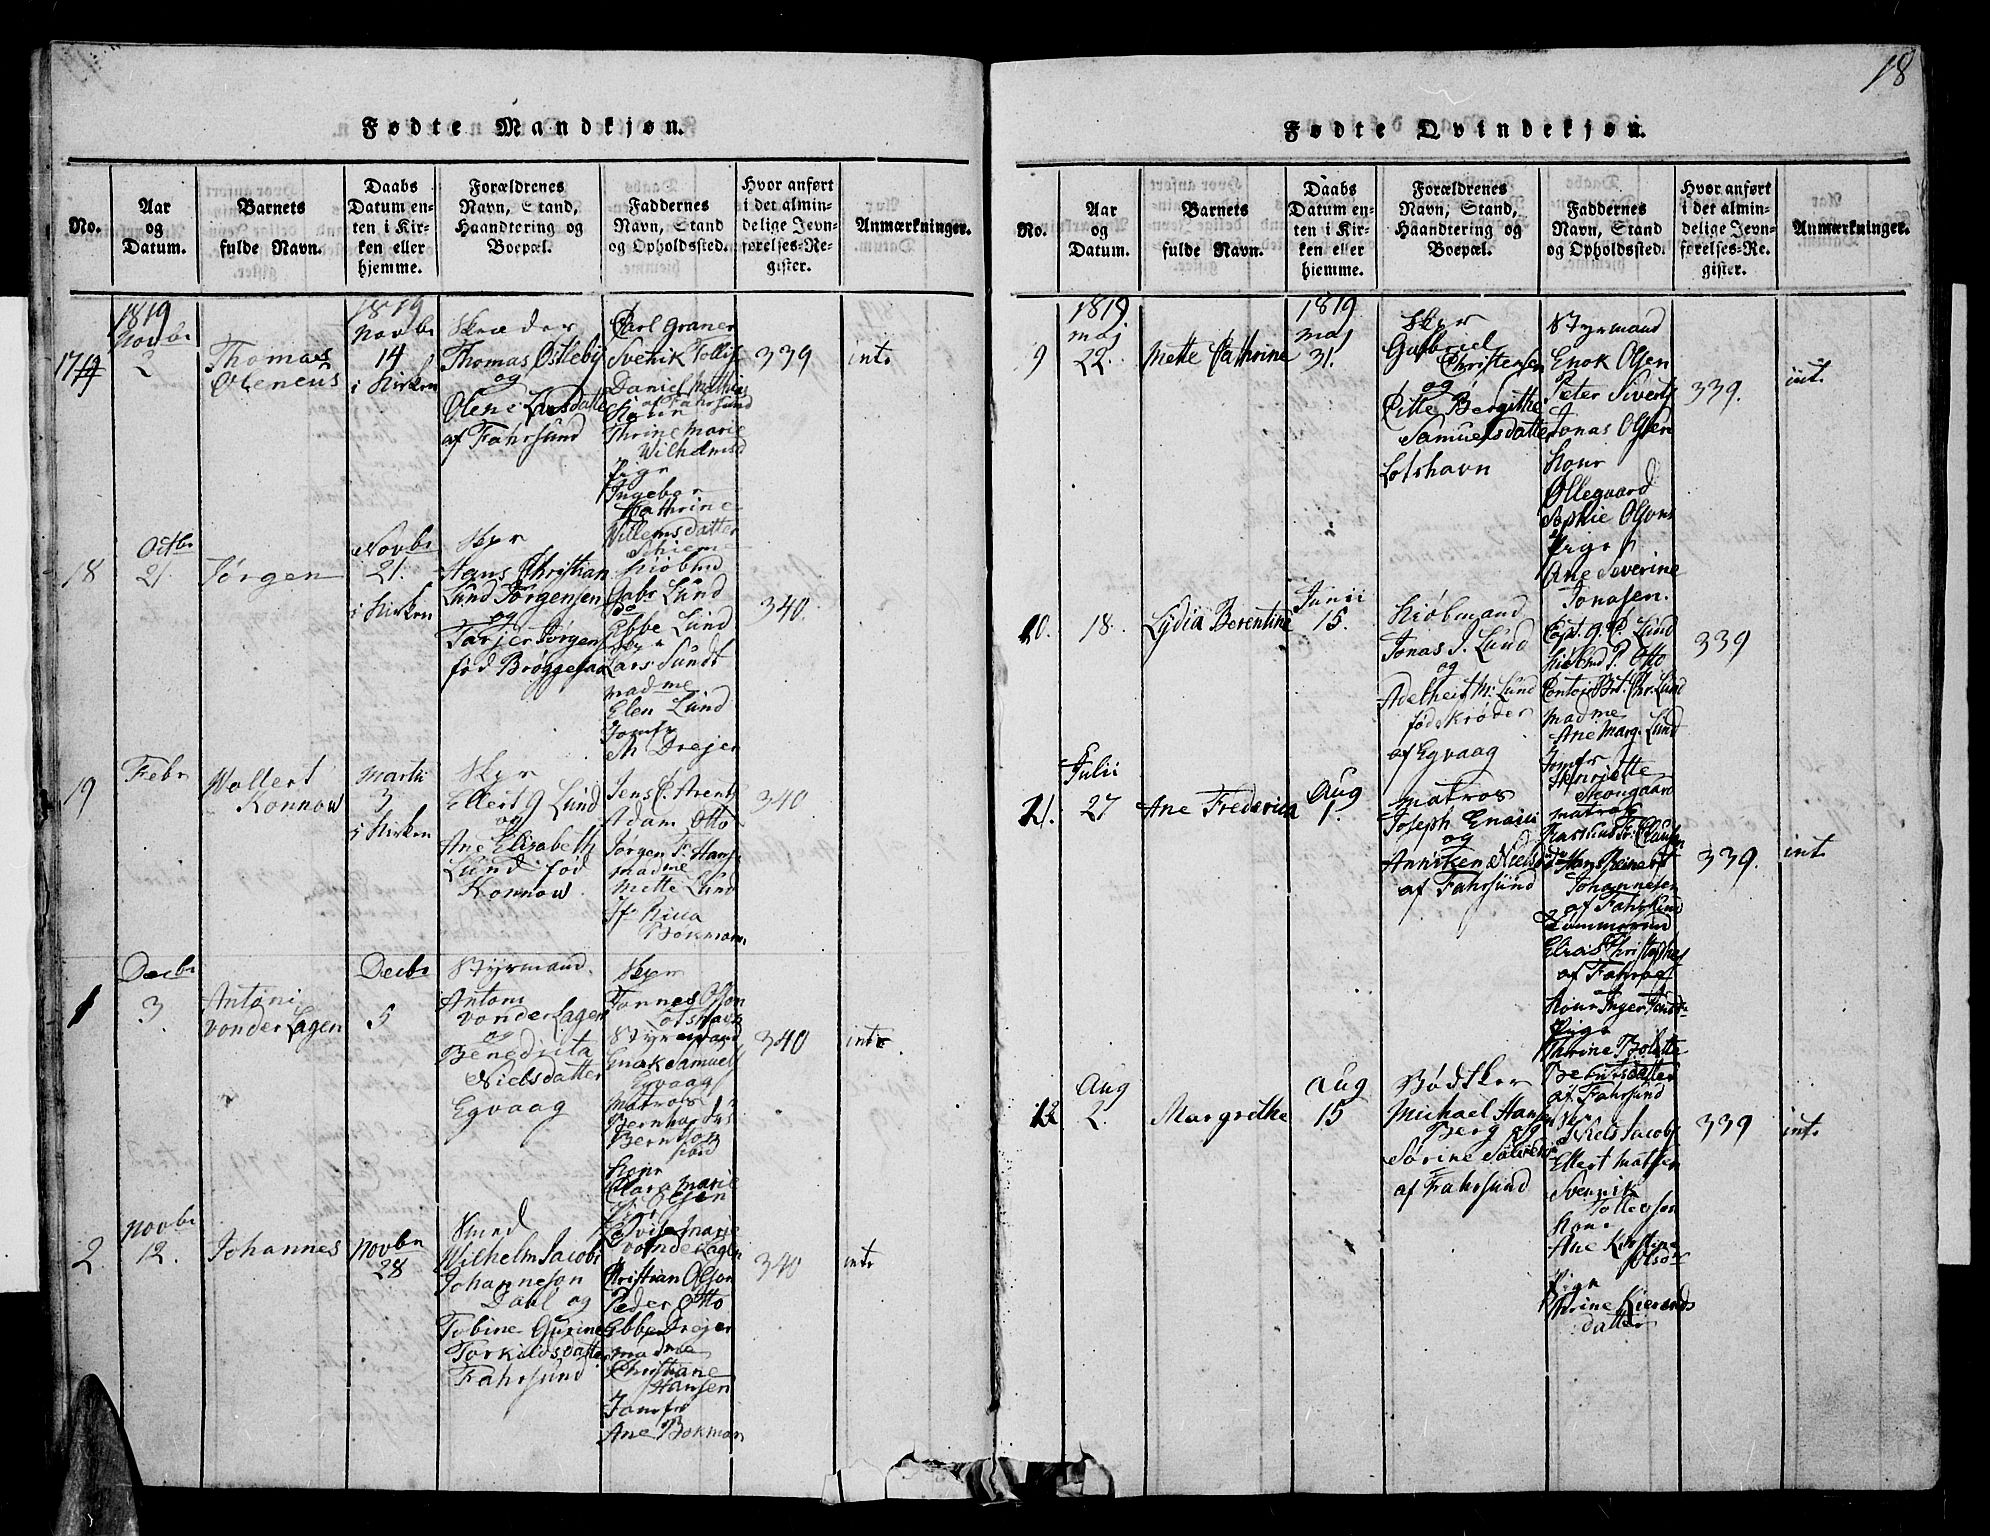 Fødte Mandkjøn.
No.
Aar
og
Datum.
Barnets
fulde Navn.
Daabs
Datum en-
ten i Kir-
ken eller
hjemme.
Forældrenes
Navn, Stand,
Haandtering og
Boepæl.
Faddernes
Navn, Stand
og Opholdssted.
Hvor anført
i det almin-
delige Jevn-
førelses-Re-
gister.
Anmærkninger.
17
1819
Novbr
2
Thomas
Oleneus
1819
Novbr
14
i Kirken
Skræder
Thomas Ostleby
og
Olene Larsdatter
af Fahrsund
Carl Graner
Svenik Tollis
Daniel Mathias
af Fahrsund
Kone
Thrine Marie
Wilhelmsd
Pige
Ingebor
Kathrine
Willemsdatter
339
int
18
Octbr
21.
Jørgen
Novbr
21.
i Kirken
Skpr
Hans Christian
Lund Jørgensen
og
Tarjer Jørgens
fød Brøggesaa
Kiøbmd
Gabr Lund
do
Ebbe Lund
Skpr
Lars Sundt
madme
Elen Lund
Jomfr
Th Drejer
340.
19
Febr
Wollert
Konnow
Martii
3
i Kirken
Skpr
Ellert G Lund
og
Ane Elisabeth
Lund fød
Konnow.
Jens C. Arent
Adam Otto
Jørgen Fr Hans
madme
Mette Lund
Jfr Ricca
Bokman
340
1
Decbr
3
Antoni
vonder Lagen
Decbr
5
Styrmand.
Antoni
vonder Lagen
og
Benedicta
Nielsdatter
Egvaag
Skpr
Tønnes Olson
Lotshavn
Styrmand
Enok Samuels
Egvaag
Matros
Bernhardus
Berntsen
Kone
Clara Marie
Olsen
340
int
2
Novbr
12.
Johannes
Novbr
28
Smed
Wilhelm Jacobs
Johanneson
Dahl og
Tobine Gurine
Torkildsdatter
Fahrsund
Lovise Marie
vonder Lagen
Christian Olson
Peder Otto
Ebbe Drejer
madme
Christiane
Hansen
Jomfr
Ane Bokman
340
int
18
Fødte Qvindekjøn.
No.
Aar
og
Datum.
Barnets
fulde Navn.
Daabs
Datum en-
ten i Kir-
ken eller
hjemme.
Forældrenes
Navn, Stand,
Haandtering og
Boepæl.
Faddernes
Navn, Stand
og Opholdssted.
Hvor anført
i det almin-
delige Jevn-
førelses-Re-
gister.
Anmærkninger.
9
1819
maj
22.
Mette Cathrine
1819
maj
31.
Skpr
Gabriel
Christensen
og
Pitte Bergithe
Samuelsdatter
Lotshavn
Styrmand
Enok Olsen
Peter Sivert
Jonas Olsen
Kone
Ollegaard
Sophie Olsens
Pige
Ane Severine
Jonasen.
339.
int
10.
18.
Lydia Berentine
Junii
15.
Kiøbmand
Jonas J. Lund
og
Adelheit M. Lund
fød Krøder
af Egvaag
Capt. G. P. Lund
Kiøbmd P. Otto
Contoir Bet. Chr. Lund
Madme
Ane Marg. Lund
Jomfr
Henriette
339
Julii
27
Ane Frederica
Aug
1.
Matros
Joseph Enarii
og
Anniken Nielsd
af Fahrsund
Matros
Rasmus Fr. Clausen
Hans Reinert
Johannesen
af Fahrsund
Tømmermd
Elias Christophers
af Fahrsd
Kone Inger
Pige
Thrine Bolette
Berntsdatter
af Fahrsund
339.
int
12
Aug
2.
Margrethe
Aug
15
Bødtker
Michael Hansen
Berg og
Sørine Salvesen
af Fahrsund
Niels Jacobs
Ellert Mathsen
Svennik
Tollersen
Kone
Ane Kirstine
Pige
Thrine Kierands
datter
339
int